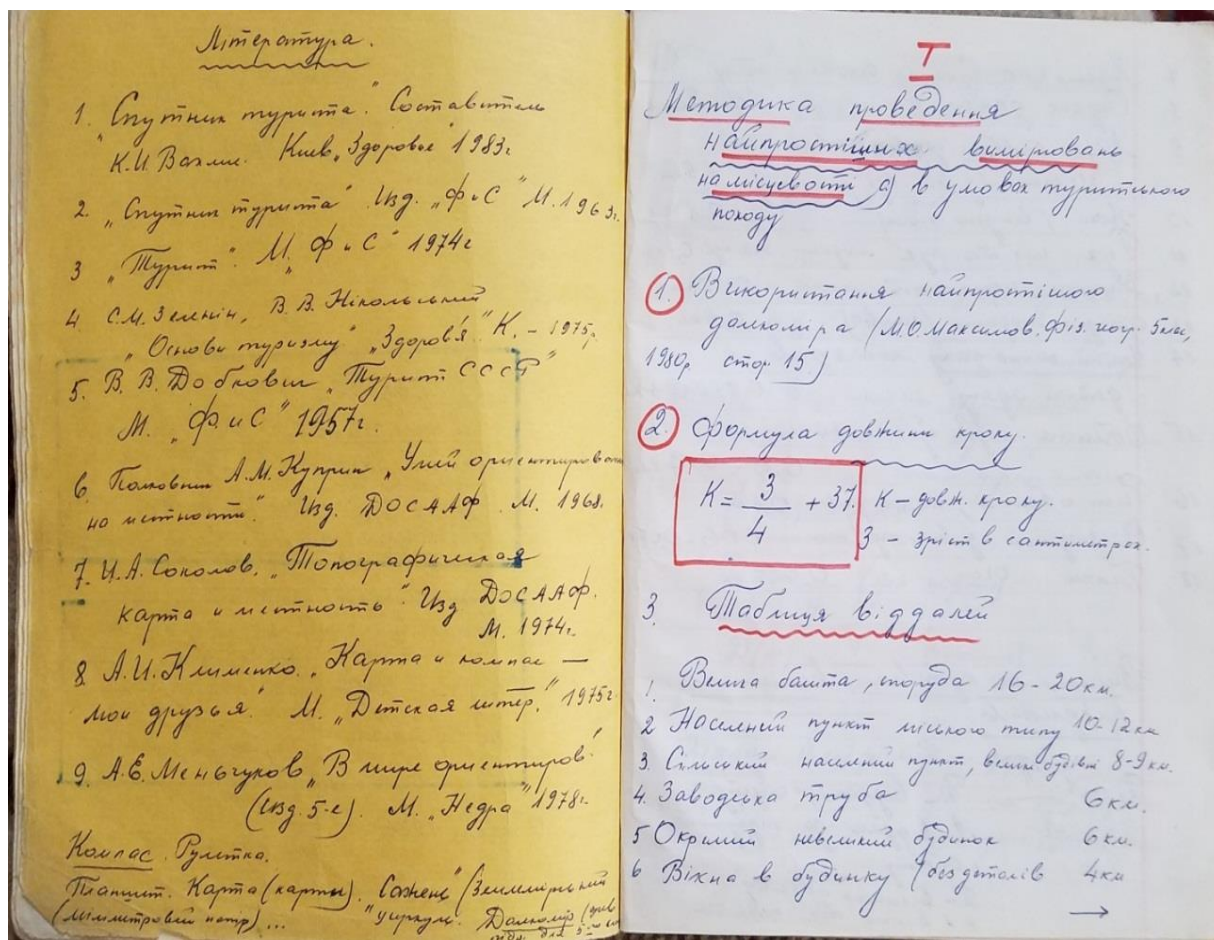 Література.
1. "Спутник туриста". Составитель
К.И. Вахлис. Киев "Здоровье" 1983г.
2. "Спутник туриста". Изд. "ФиС" М. 1963г.
3 "Турист". М. "ФиС" 1974г
4. С.М. Зеленін, В.В. Нікольський
"Основи туризму" "Здоров'я". К. – 1975р.
5. В.В. Добкович "Турист СССР"
М. "ФиС" 1957г.
6. Полковник А.М. Куприн "Умей ориентирова
на местности". Изд. ДОСААФ. М. 1968г.
7. И.А. Соколов. "Топографическая
карта и местность" Изд ДОСААФ.
М. 1974г.
8 А.И. Клименко. "Карта и компас —
мои друзья". М. "Детская литер." 1975г
9. А.Е. Меньчуков "В мире ориентиров"
(Изд. 5-е). М. "Недра" 1978г.
Компас. Рулетка.
Планшет. Карта (карты). "Сажень" (Землемірський
(міліметровий папір)... циркуль. Далекомір
I
Методика проведення
найпростіших вимірювань
на місцевості а) в умовах туристського
походу
1. Використання найпростішого
далекоміра (М.О. Максимов. Фіз. геогр. 5 клас,
1980р стор. 15)
2. Формула довжини кроку.
К = З/4 + 37. К – довж. кроку.
З – зріст в сантиметрах.
3. Таблиця віддалей
1. Велика башта, споруда 16-20 км.
2 Населений пункт міського типу 10-12 км
3. Сільський населений пункт, великі будівлі 8-9 км.
4. Заводська труба 6 км.
5 Окремий невеликий будинок 6 км.
6 Вікна в будинку (без деталів 4 км
→